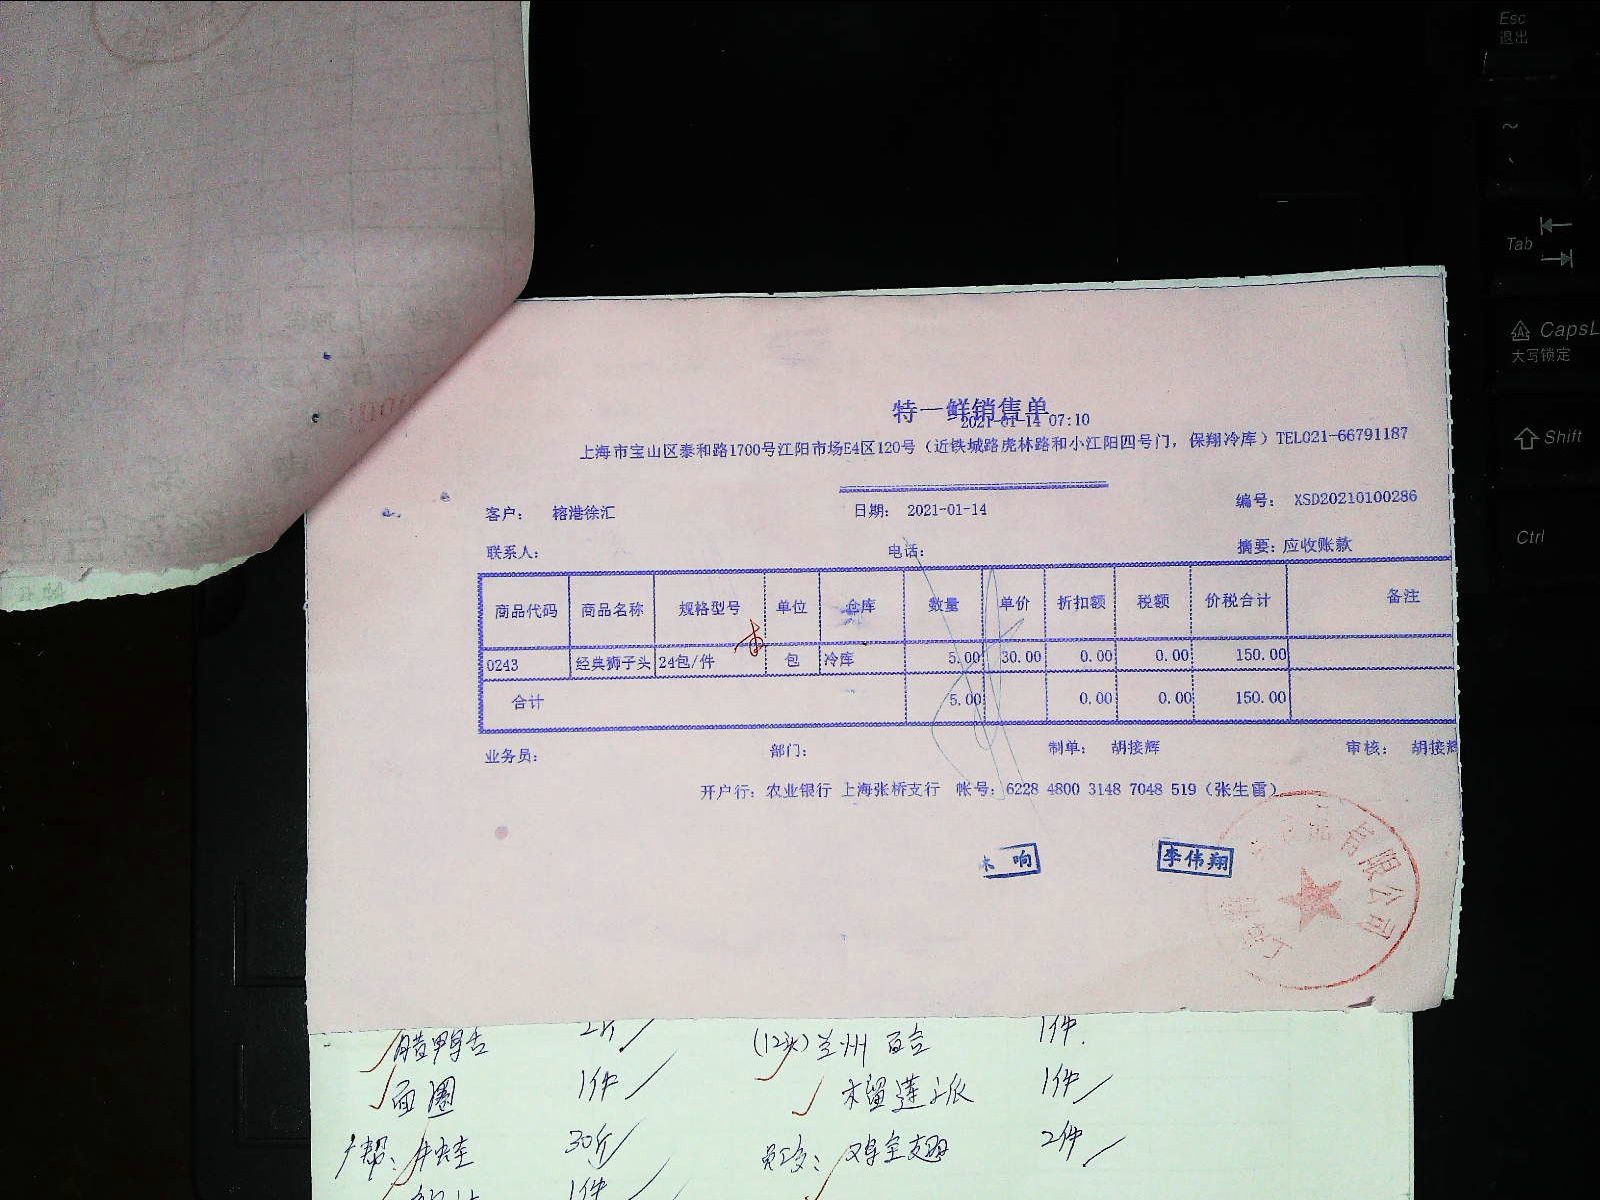 特一鲜销售单
2021-01-14 07:10
上海市宝山区泰和路1700号江阳市场E4区120号（近铁城路虎林路和小江阳四号门，保翔冷库）TEL021-66791187
客户： 榕港徐汇 日期： 2021-01-14 编号： XSD20210100286
联系人： 电话： 摘要：应收账款
商品代码 商品名称 规格型号 单位 仓库 数量 单价 折扣额 税额 价税合计 备注
0243 经典狮子头 24包/件 包 冷库 5.00 30.00 0.00 0.00 150.00
合计 5.00 0.00 0.00 150.00
业务员： 部门： 制单： 胡接辉 审核： 胡接辉
开户行：农业银行 上海张桥支行 帐号：6228 4800 3148 7048 519（张生雷）
响 李伟翔
品有限公司
腊鸭舌 2斤 (12头)兰州百合 1件
面圈 1件 木留莲派 1件
牛蛙 30斤 鸡全翅 2件
1件
Esc
退出
~
Tab
CapsL
大写锁定
Shift
Ctrl